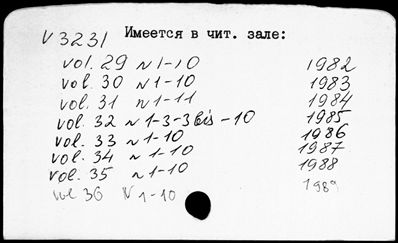 V 3231
Имеется в чит. зале:
vol. 29 N 1-10 1982
vol. 30 N 1-10 1983
vol. 31 N 1-11 1984
vol. 32 N 1-3-3bis-10 1985
vol. 33 N 1-10 1986
vol. 34 N 1-10 1987
vol. 35 N 1-10 1988
vol 36 N 1-10 1989